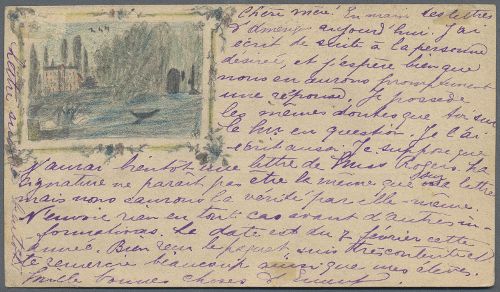 Chère mère! En main les lettres
d'Amérique aujourd'hui. J'ai
écrit de suite à la personne
désirée, et j'espère bien que
nous en aurons promptement
une réponse. Je possède
les mêmes doutes que toi sur
le en question. Je l'ai
écrit aussi. Je suppose que
j'aurai bientôt une lettre de Miss Rogers. La
signature ne parait pas être la même que sa lettre
mais nous saurons la vérité par elle-même.
N'envoie rien en tout cas avant d'autres in-
formations. La date est du 7 février cette
année. Bien reçu le paquet, suis très contente et
te remercie beaucoup ainsi que mes élèves.
Mille bonnes choses d'